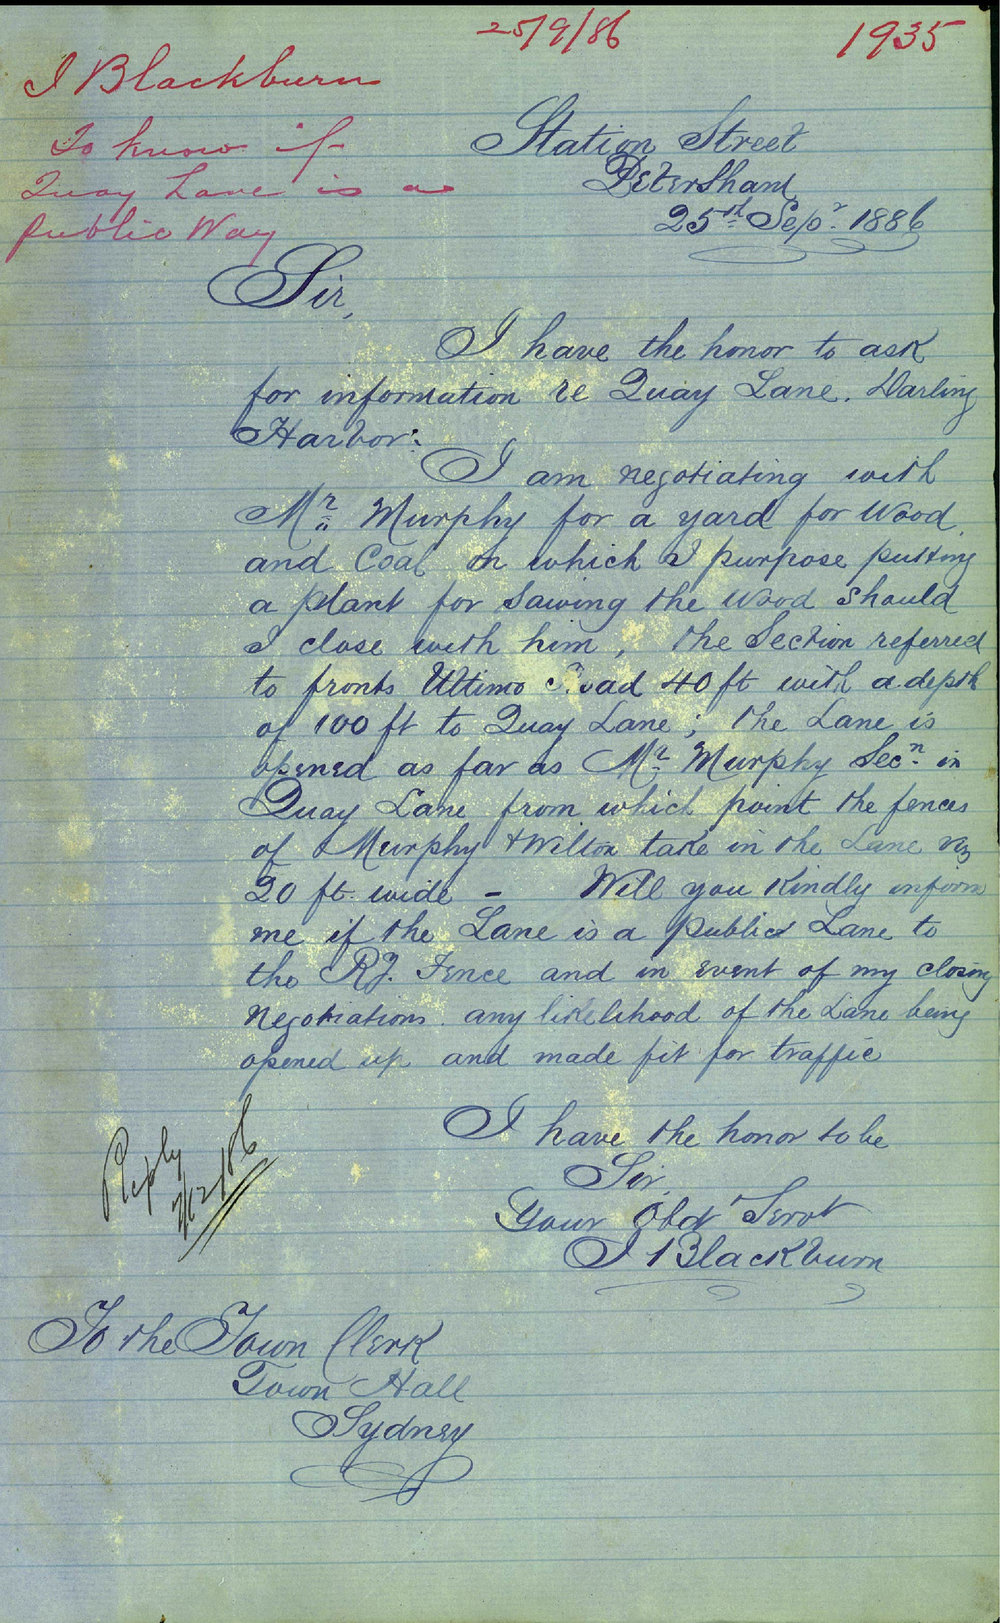 25/9/86
1935
I Blackburn
To know if
Quay Lane is a
public Way
Station Street
Petersham
25th Sepr. 1886
Sir,
I have the honor to ask
for information re Quay Lane. Darling
Harbor:
I am negotiating with
Mr. Murphy for a yard for Wood
and Coal on which I purpose putting
a plant for sawing the wood should
I close with him, the Section referred
to fronts Ultimo Road 40 ft with a depth
of 100 ft to Quay Lane; the Lane is
opened as far as Mr. Murphy Secn. in
Quay Lane from which point the fences
of Murphy & Wilton take in the Lane
20 ft. wide - Will you Kindly inform
me if the Lane is a public Lane to
the Ry. Fence and in event of my closing
Negotiations. any likelihood of the Lane being
opened up and made fit for traffic
I have the honor to be
Sir.
Your Obdt Servt
I Blackburn
Reply
To the Town Clerk
Town Hall
Sydney